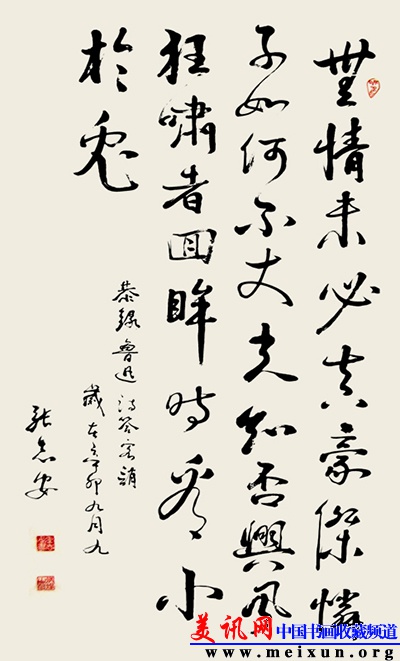 無情未必真豪傑憐
子如何不丈夫知否興風
狂嘯者回眸時看小
於兔
恭錄魯迅詩答客誚
歲在辛卯九月九
張 安
美讯网 中国书画收藏频道
www.meixun.org